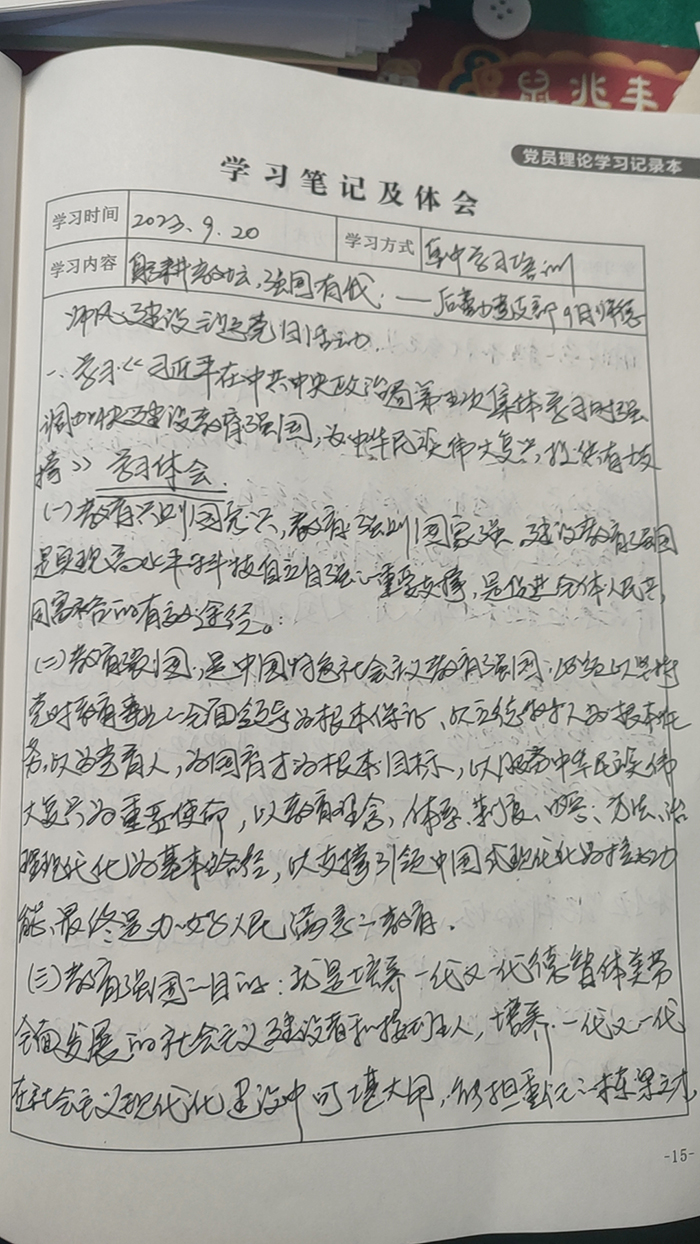 鼠兆丰
党员理论学习记录本
学习笔记及体会
学习时间 2023.9.20 学习方式 集中学习培训
学习内容 躬耕教坛,强国有我:——后勤党支部9月师德
师风建设主题党日活动.
一、学习《习近平在中共中央政治局第五次集体学习时强
调加快建设教育强国,为中华民族伟大复兴提供有力支
撑》学习体会.
(一)教育兴则国家兴,教育强则国家强 建设教育强国
是实现高水平科技自立自强的重要支撑,是促进全体人民共
同富裕的有效途径。
(二)教育强国,是中国特色社会主义教育强国,必须以坚持
党对教育事业的全面领导为根本保证、以立德树人为根本任
务,以为党育人,为国育才为根本目标,以服务中华民族伟
大复兴为重要使命,以教育理念,体系、制度、内容、方法、治
理现代化为基本路径,以支撑引领中国式现代化为核心功
能,最终是办好人民满意的教育.
(三)教育强国的目的:就是培养一代又一代德智体美劳
全面发展的社会主义建设者和接班人,培养一代又一代
在社会主义现代化建设中可堪大用,能担重任的栋梁之才,
-15-